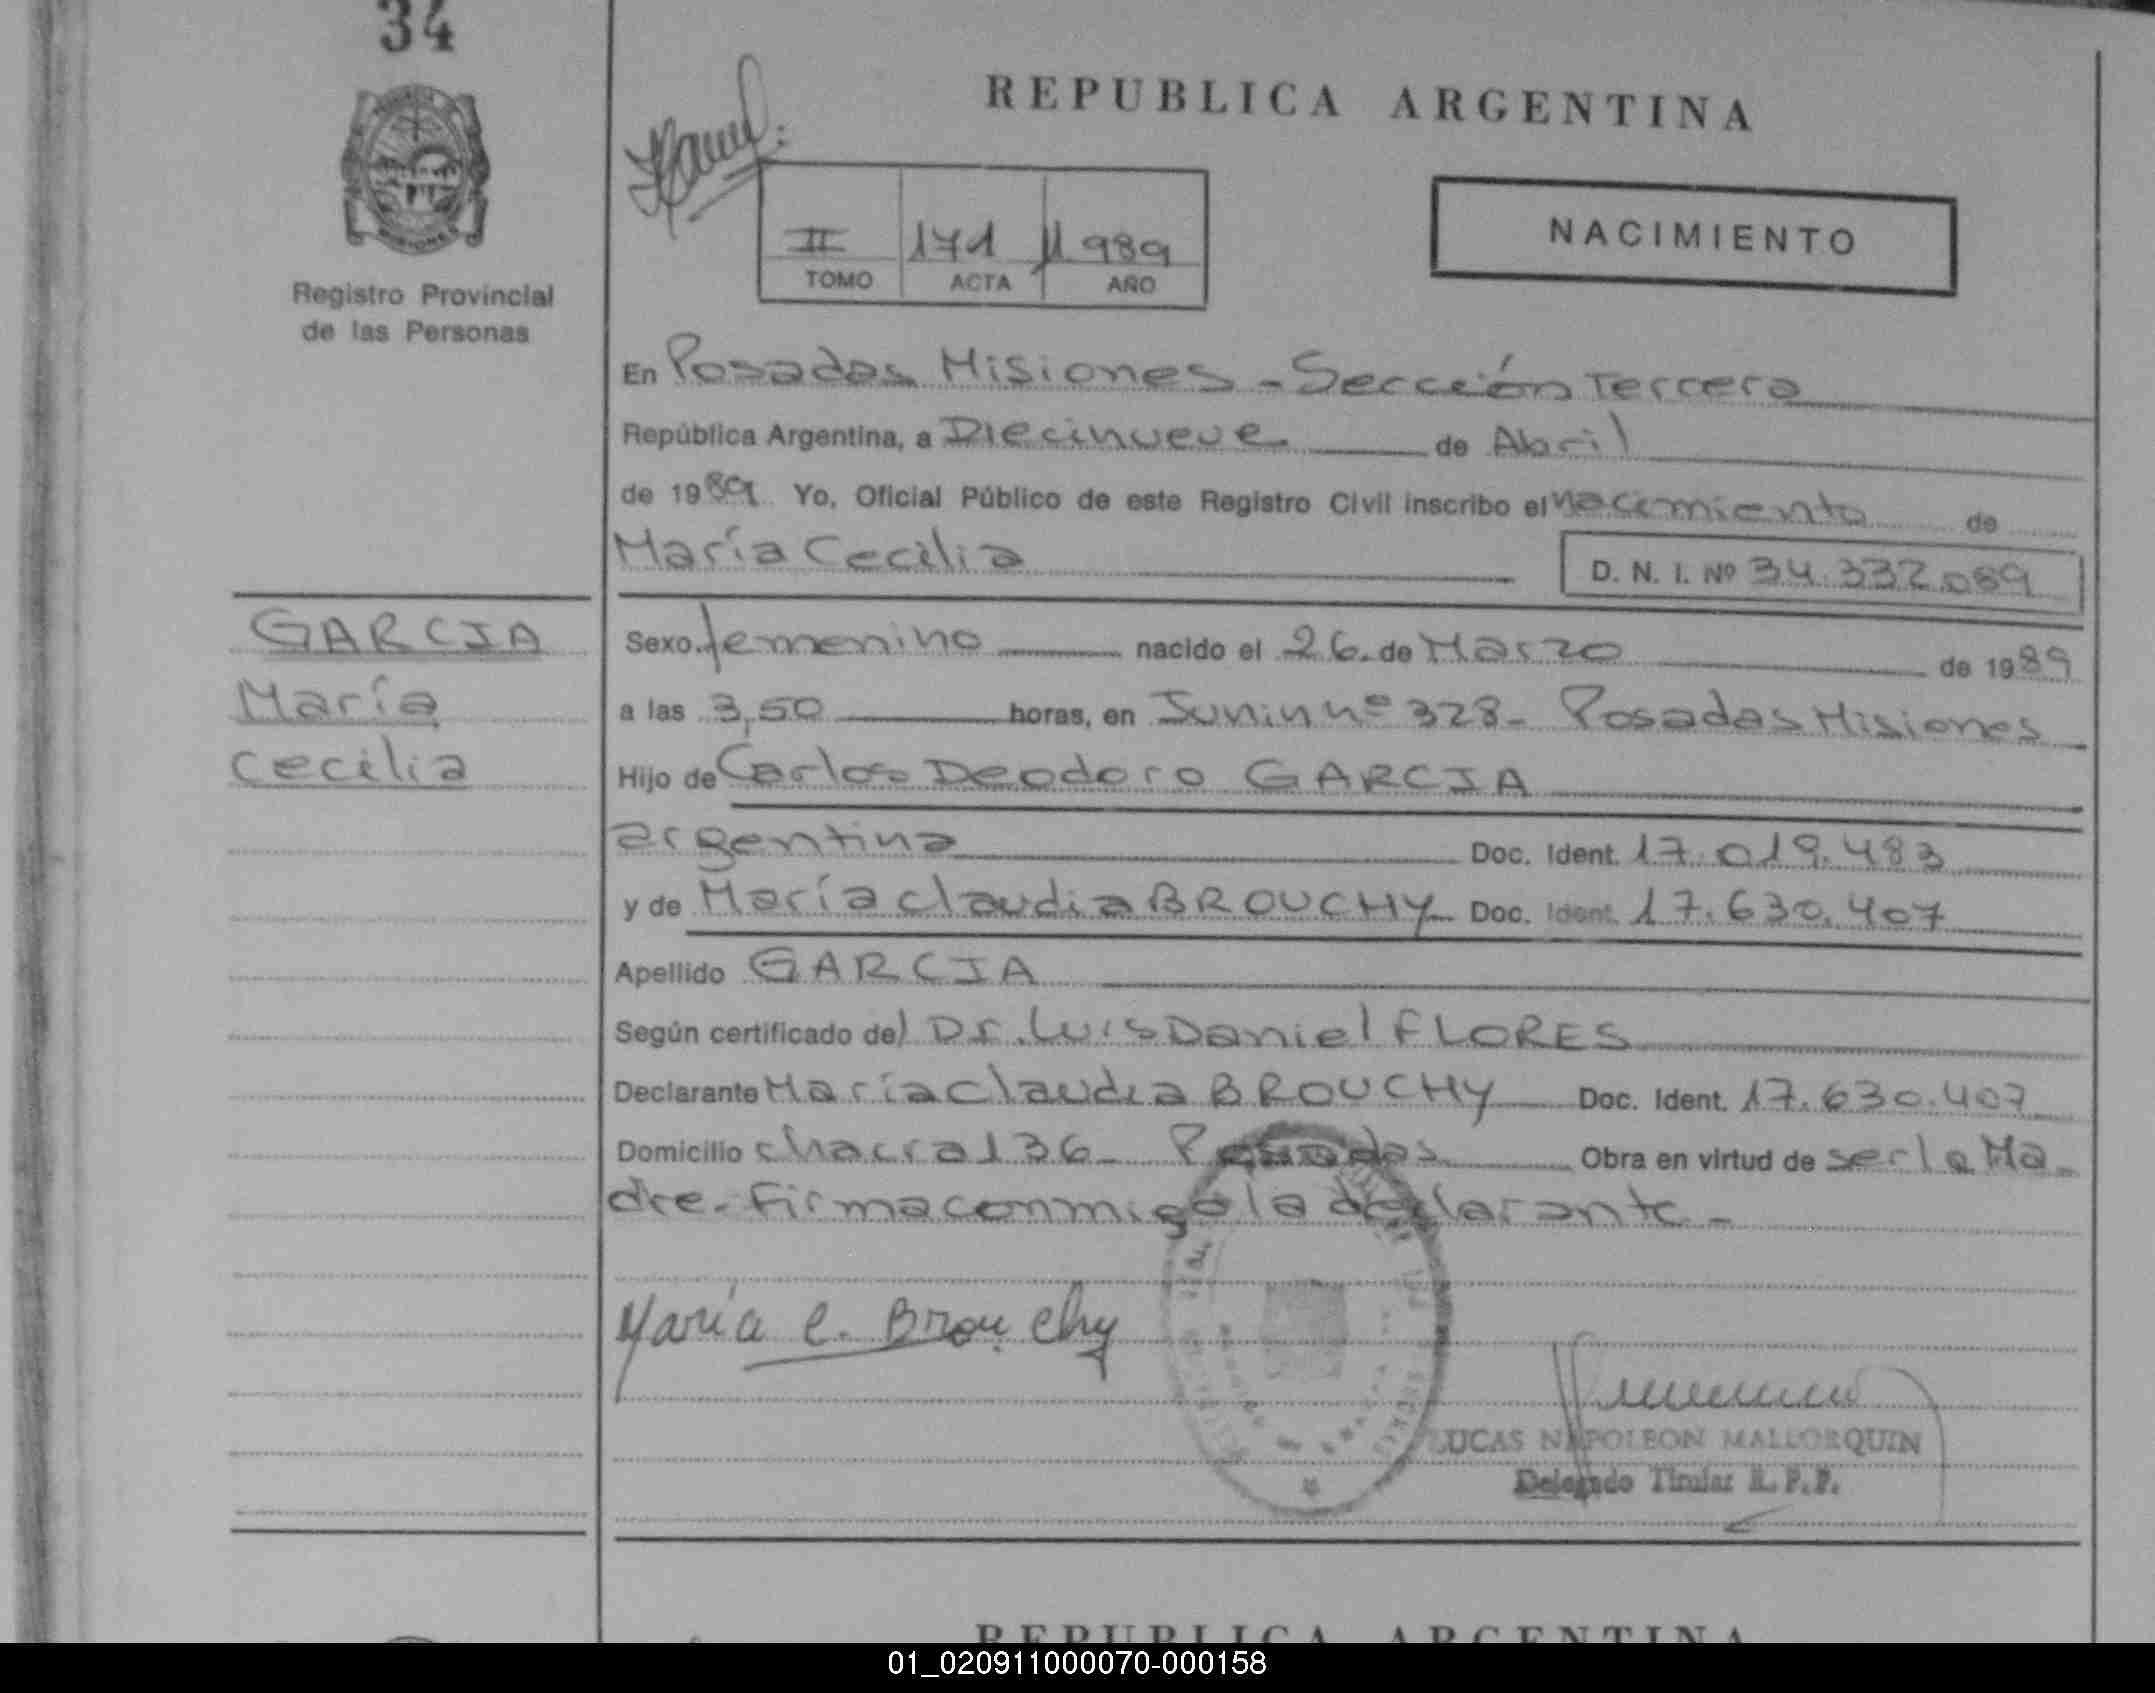 34
REPUBLICA ARGENTINA
NACIMIENTO
II 171 1989
TOMO ACTA AÑO
MISIONES
Registro Provincial
de las Personas
En Posadas Misiones - Sección Tercera
República Argentina, a Diecinueve de Abril
de 1989 Yo, Oficial Público de este Registro Civil inscribo el nacimiento de
María Cecilia D. N. I. Nº 34.332.089
GARCIA
María
Cecilia
Sexo femenino nacido el 26 de Marzo de 1989
a las 3,50 horas, en Junin nº 328 - Posadas Misiones
Hijo de Carlos Deodoro GARCIA
argentina Doc. Ident. 17.019.483
y de María Claudia BROUCHY Doc. Ident. 17.630.407
Apellido GARCIA
Según certificado del Dr. Luis Daniel FLORES
Declarante María Claudia BROUCHY Doc. Ident. 17.630.407
Domicilio chacra 136 - Posadas Obra en virtud de ser la Ma-
dre - Firma conmigo la declarante -
María C. Brouchy
LUCAS NAPOLEON MALLORQUIN
Delegado Titular R. P. P.
REPUBLICA ARGENTINA
01_020911000070-000158